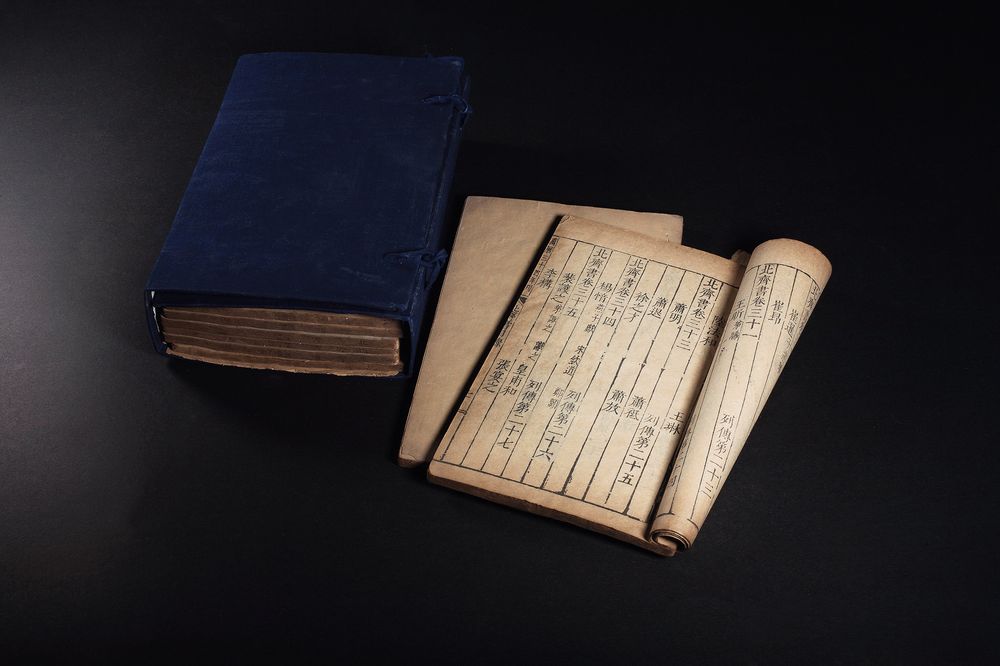 崔暹
崔昂
北齊書卷三十一 列傳第二十三
王昕 弟晞
陸法和 王琳
北齊書卷三十三 列傳第二十五
蕭明 蕭祗
蕭退 蕭放
徐之才
北齊書卷三十四 列傳第二十六
楊愔 宋欽道 鄭頤
北齊書卷三十五 列傳第二十七
裴讓之 弟諏之 讞之 皇甫和
李構 張宴之